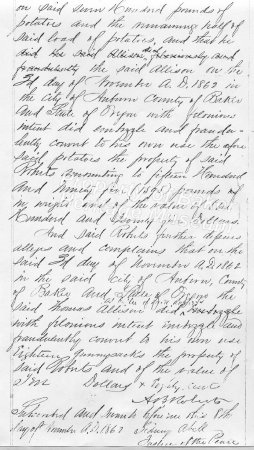 on said seven Hundred pounds of
potatoes and the remaining half of
said load of potatoes, and that he
did the said Allison feloniously and
fraudulently the said Allison on the
2d day of November A.D. 1862 in
the City of Auburn County of Baker
and State of Oregon with felonious
intent did embezzle and fraudu-
lently convert to his own use the afore
said potatoes the property of said
Rohlfs amounting to fifteen Hundred
and Ninety five (1595) pounds of
in weight and of the value of One
Hundred and Twenty five Dollars.
And said Rohlfs further deposes
alleges and complains that on the
said 2d day of November A.D. 1862
in the said City of Auburn, County
of Baker and State of Oregon the
said Thomas Allison did embezzle
with felonious intent embezzle and
fraudulently convert to his own use
Eighteen gunnysacks the property of
said Rohlfs and of the value of
Dollars & Fifty cents
Subscribed and sworn before me this 8th
day of November A.D. 1862 Sidney Abell
Justice of the Peace